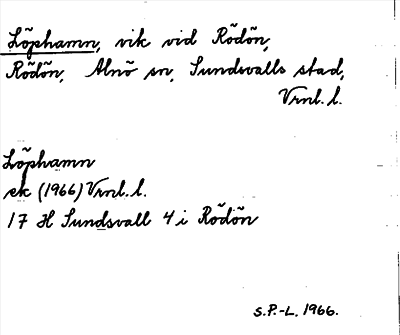 Löphamn, vik vid Rödön,
Rödön, Alnö sn, Sundsvalls stad,
Vrnl. l.
Löphamn
ek (1966) Vrnl. l.
17 H Sundsvall 4 i Rödön
S.P.-L. 1966.